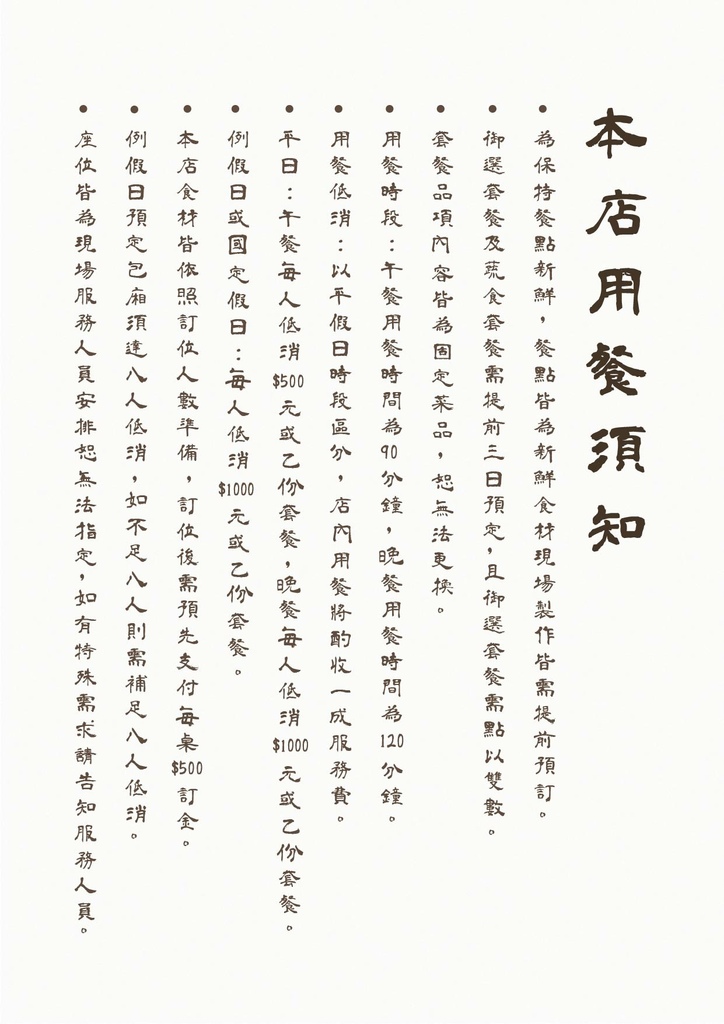 本店用餐須知
• 為保持餐點新鮮，餐點皆為新鮮食材現場製作皆需提前預訂。
• 御選套餐及蔬食套餐需提前三日預定，且御選套餐需點以雙數。
• 套餐品項內容皆為固定菜品，恕無法更換。
• 用餐時段：午餐用餐時間為90分鐘，晚餐用餐時間為120分鐘。
• 用餐低消：以平假日時段區分，店內用餐將酌收一成服務費。
• 平日：午餐每人低消$500元或乙份套餐，晚餐每人低消$1000元或乙份套餐。
• 例假日或國定假日：每人低消$1000元或乙份套餐。
• 本店食材皆依照訂位人數準備，訂位後需預先支付每桌$500訂金。
• 例假日預定包廂須達八人低消，如不足八人則需補足八人低消。
• 座位皆為現場服務人員安排恕無法指定，如有特殊需求請告知服務人員。